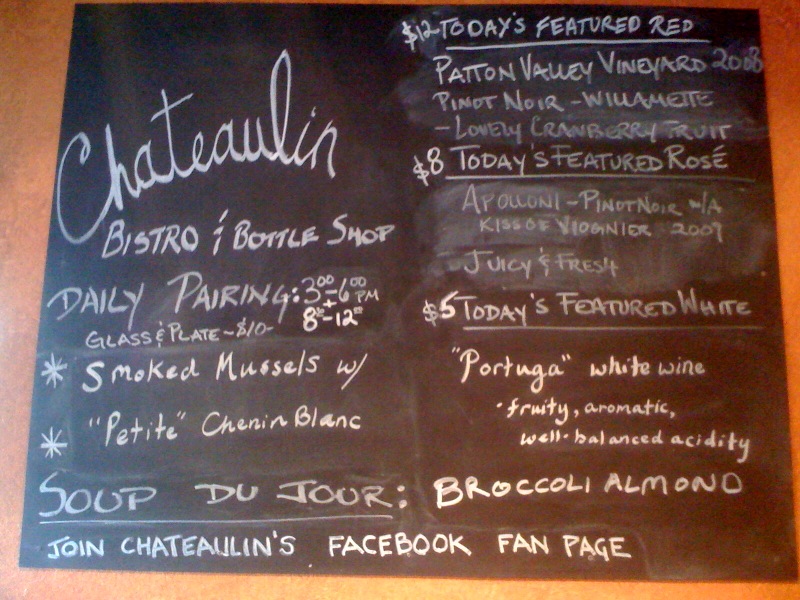 Chateaulin
BISTRO & BOTTLE SHOP
DAILY PAIRING: 3:00-6:00 PM
+
8:00-12:00
GLASS & PLATE - $10-
* Smoked Mussels w/
* "Petite" Chenin Blanc
$12 TODAY'S FEATURED RED
PATTON VALLEY VINEYARD 2008
PINOT NOIR - WILLAMETTE
- LOVELY CRANBERRY FRUIT
$8 TODAY'S FEATURED ROSÉ
APOLLONI - PINOT NOIR w/A
KISS OF VIOGNIER 2009
- JUICY & FRESH
$5 TODAY'S FEATURED WHITE
"Portuga" white wine
· fruity, aromatic,
well-balanced acidity
SOUP DU JOUR: BROCCOLI ALMOND
JOIN CHATEAULIN'S FACEBOOK FAN PAGE